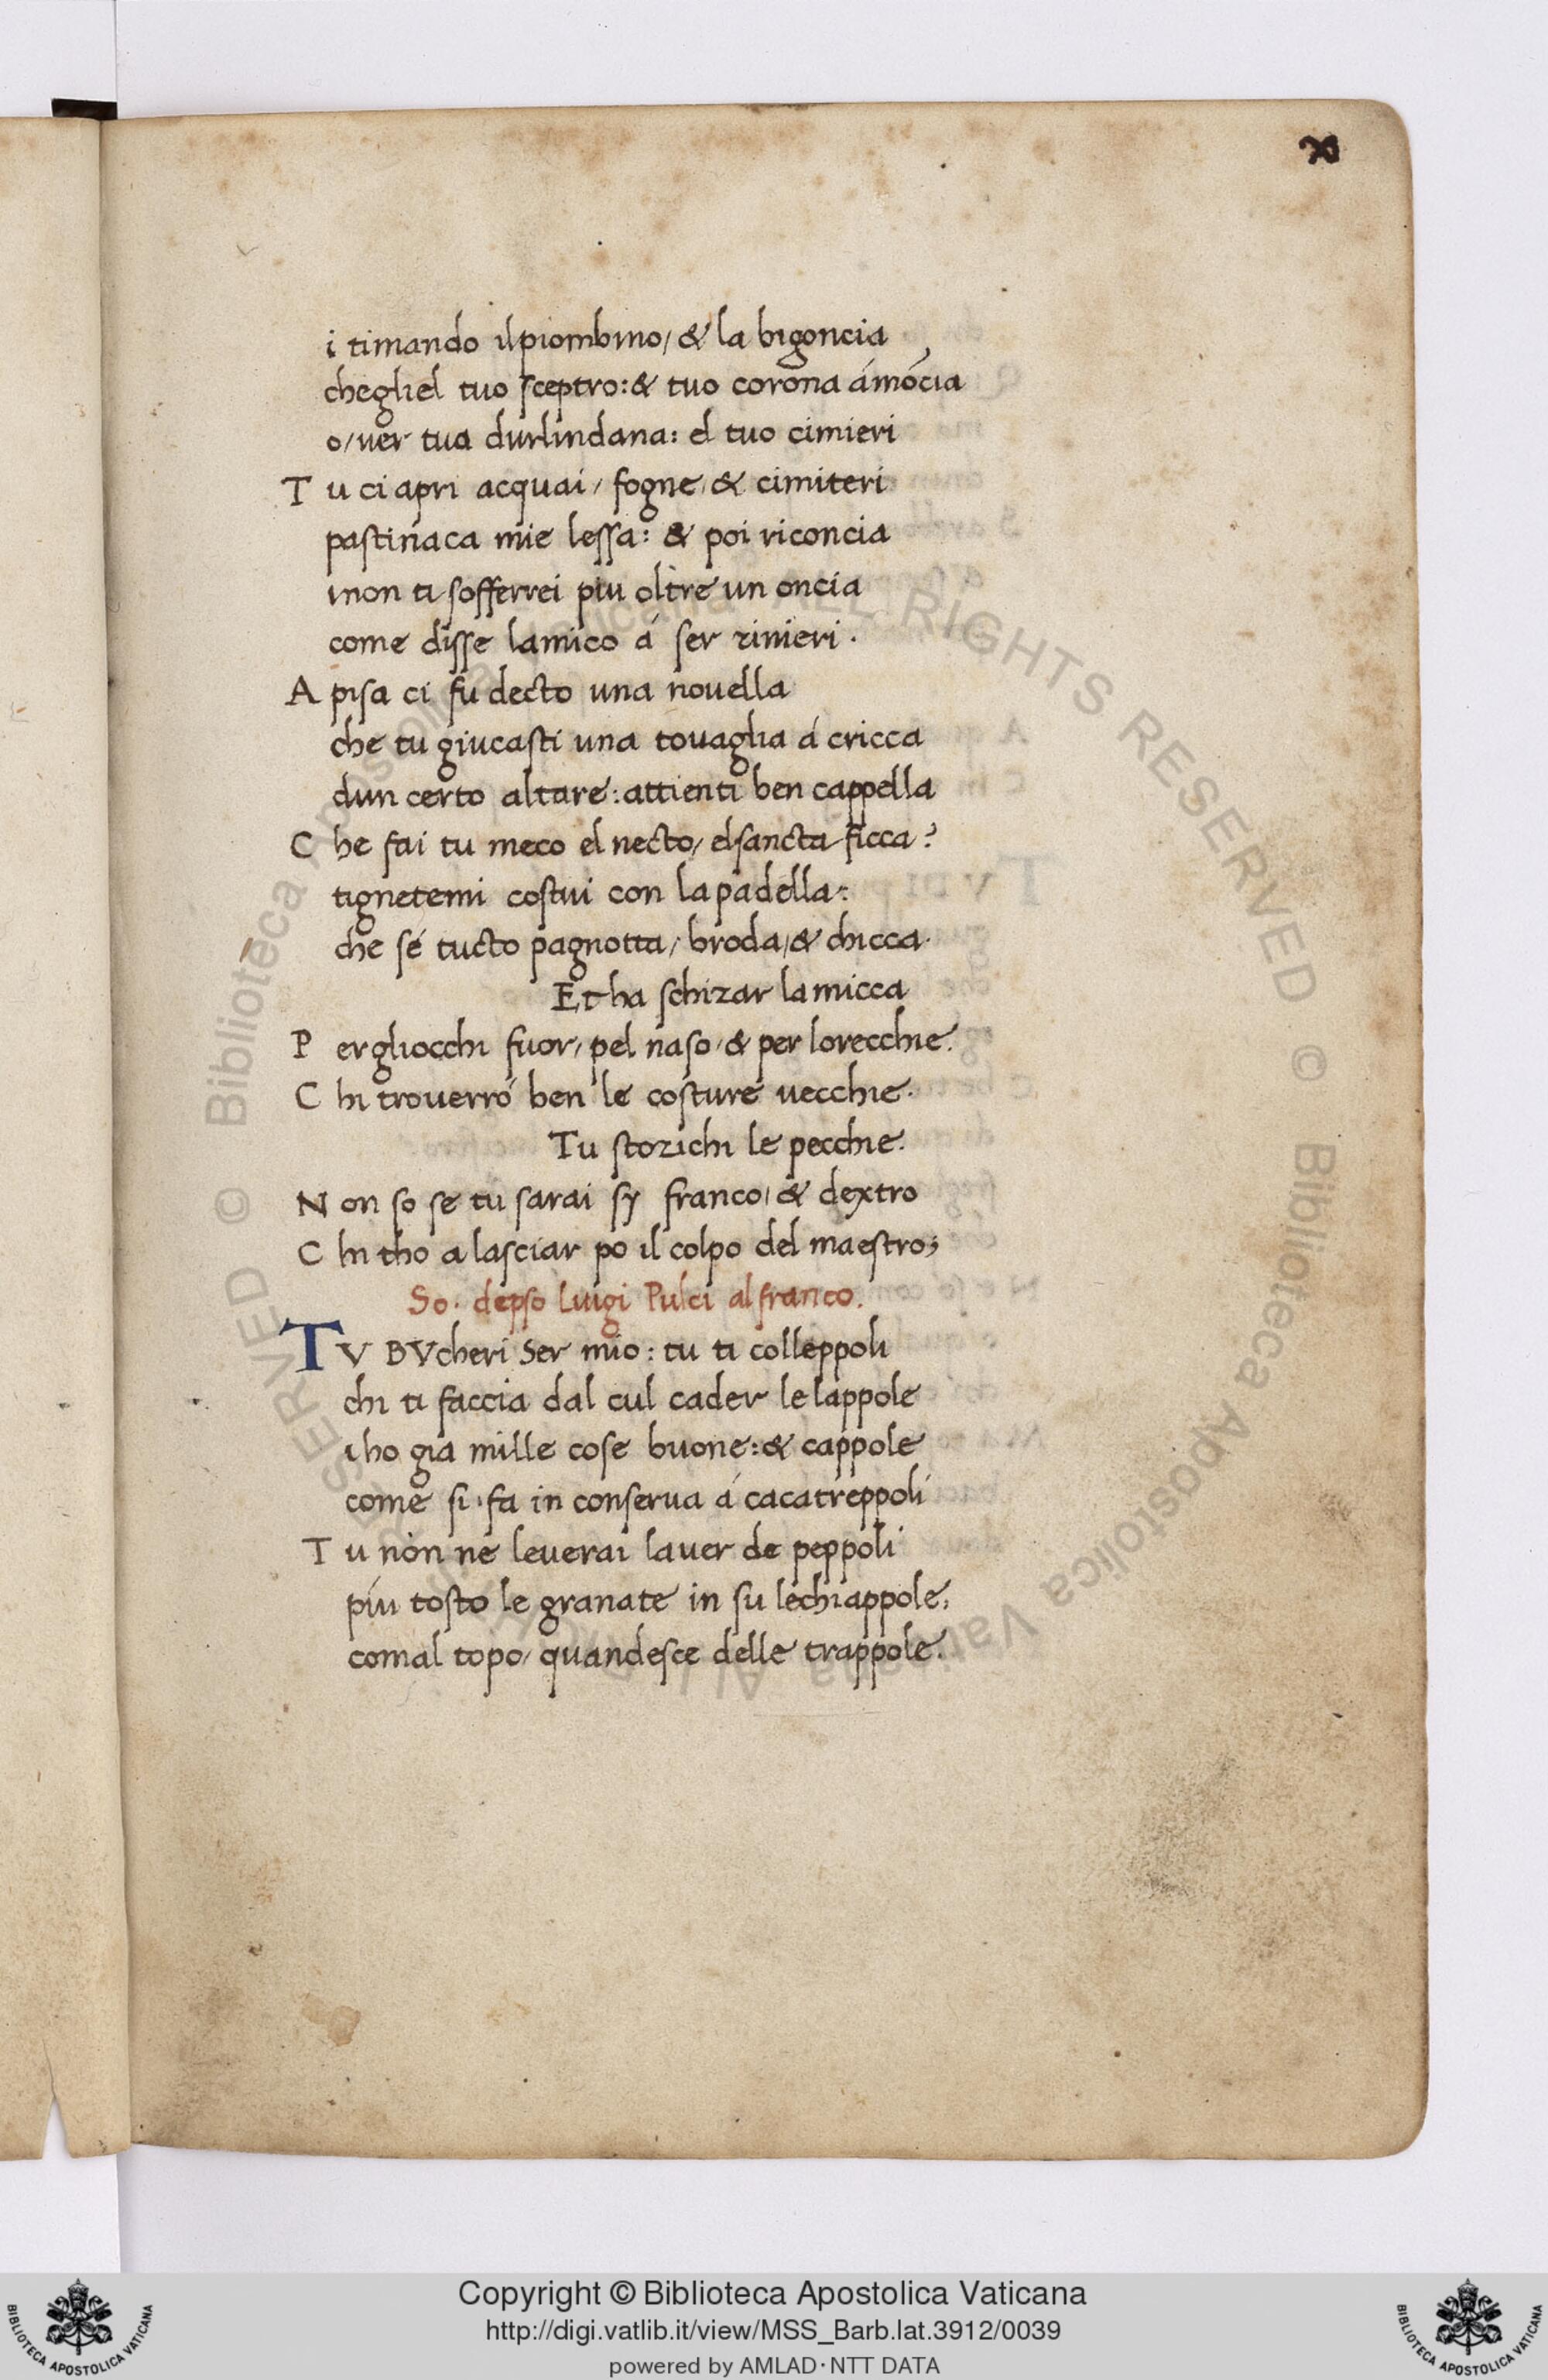 xi
i timando ilpiombino/ & la bigoncia
chegliel tuo sceptro: & tuo corona ámócia
o/uer tua durlindana: el tuo cimieri
T u ci apri acquai/ fogne/ & cimiteri
pastinaca mie lessa: & poi riconcia
inon ti sofferrei piu oltre un oncia
come disse lamico á ser rinieri.
A pisa ci fu decto una nouella
che tu giucasti una touaglia á cricca
dun certo altare: attienti ben cappella
C he fai tu meco el necto/ elsancta ficca?
tignetemi costui con lapadella:
che sé tucto pagnotta/ broda/ & chicca.
Et ha schizar lamicca
P ergliocchi fuor/ pel naso/ & per lorecchie.
C hi trouerró ben le costure uecchie.
Tu stozichi le pecchie.
N on so se tu sarai sy franco/ & dextro
C hi tho a lasciar po il colpo del maestro;
So. depso Luigi Pulci al franco.
TV BVcheri Ser mio: tu ti colleppoli
chi ti faccia dal cul cader le lappole
i ho gia mille cose buone: & cappole
come si fa in conserua á cacatreppoli
T u non ne leuerai lauer de peppoli
piu tosto le granate in su lechiappole,
comal topo/ quandesce delle trappole.
© Biblioteca Apostolica Vaticana ALL RIGHTS RESERVED © Biblioteca Apostolica Vaticana ALL RIGHTS RESERVED
Copyright © Biblioteca Apostolica Vaticana
http://digi.vatlib.it/view/MSS_Barb.lat.3912/0039
powered by AMLAD·NTT DATA
BIBLIOTECA APOSTOLICA VATICANA
BIBLIOTECA APOSTOLICA VATICANA